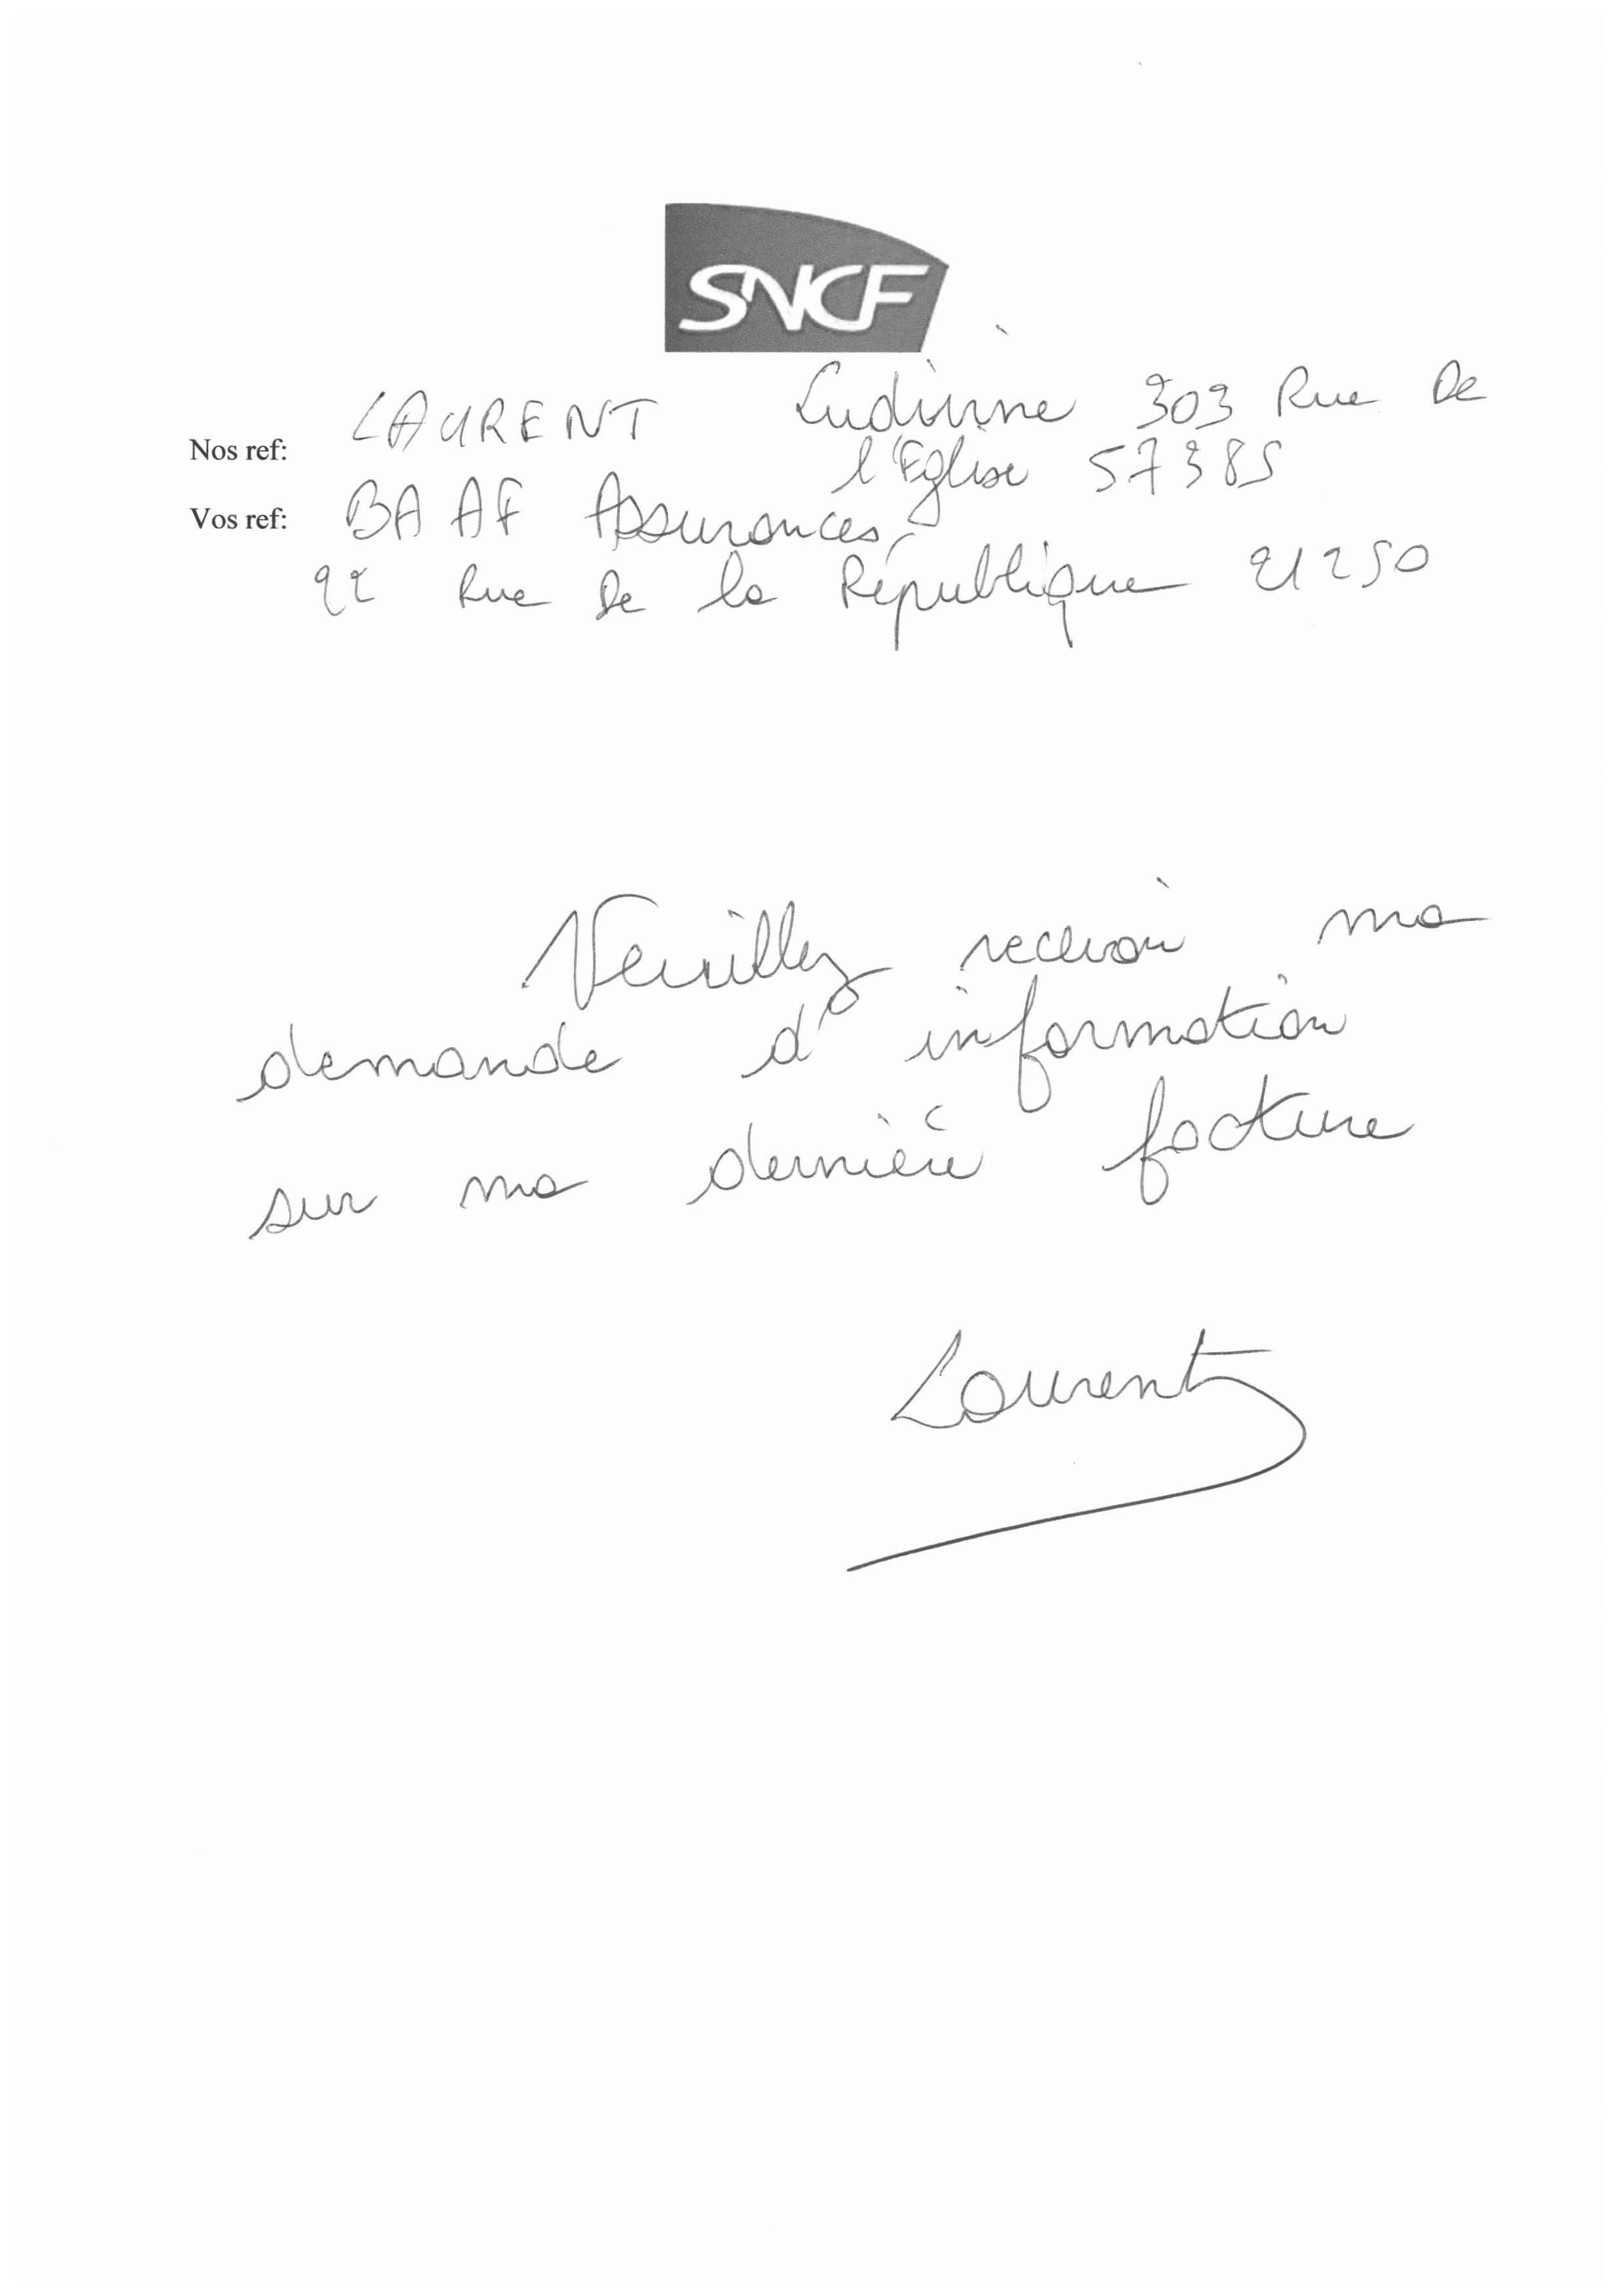 SNCF
Nos ref: LAURENT Ludivine 303 Rue De
l'Eglise 57385
Vos ref: BAAF Assurances
22 Rue De la République 21250
Veuillez recevoir ma
demande d'information
sur ma dernière facture
Laurent